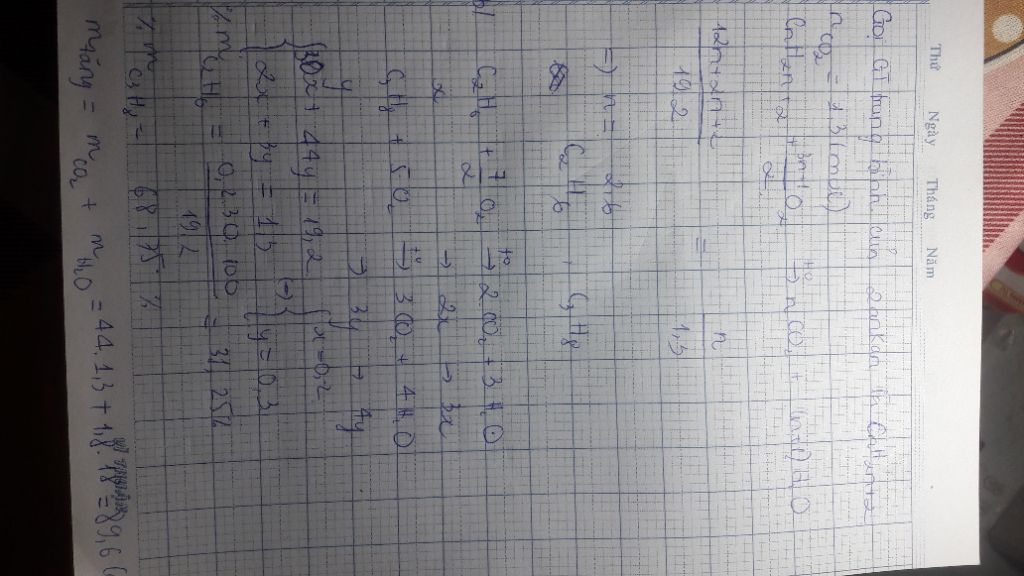 Thứ Ngày Tháng Năm
Gọi CT trung bình của 2 ankan là CnH2n+2
nCO2 = 1,3 (mol)
CnH2n+2 + 3n+1/2 O2 →(t°) nCO2 + (n+1)H2O
12n+2n+2/19,2 = n/1,3
=> n = 2,6
C2H6, C3H8
b/ C2H6 + 7/2 O2 →(t°) 2CO2 + 3H2O
x → 2x → 3x
C3H8 + 5O2 →(t°) 3CO2 + 4H2O
y → 3y → 4y
{30x + 44y = 19,2 {x = 0,2
{2x + 3y = 1,3 (=) {y = 0,3
% mC2H6 = 0,2.30.100/19,2 = 31,25%
% mC3H8 = 68,75 %
mtăng = mCO2 + mH2O = 44.1,3 + 1,8.18 = 89,6 (